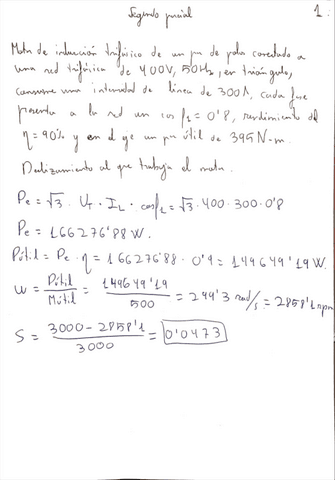 Segundo parcial 1
Motor de inducción trifásico de un par de polos conectado a
una red trifásica de 400V, 50Hz, en triángulo,
consume una intensidad de línea de 300A, cada fase
presenta a la red un cos φL = 0'8, rendimiento del
η = 90% y en el eje un par útil de 395 N-m.
Deslizamiento al que trabaja el motor.
Pe = √3 · UT · IL · cosφL = √3 · 400 · 300 · 0'8
Pe = 166276'88 W.
Pútil = Pe · η = 166276'88 · 0'9 = 149649'19 W
ω = Pútil/Mútil = 149649'19/500 = 299'3 rad/s = 2858'1 rpm
S = 3000 - 2858'1/3000 = 0'0473